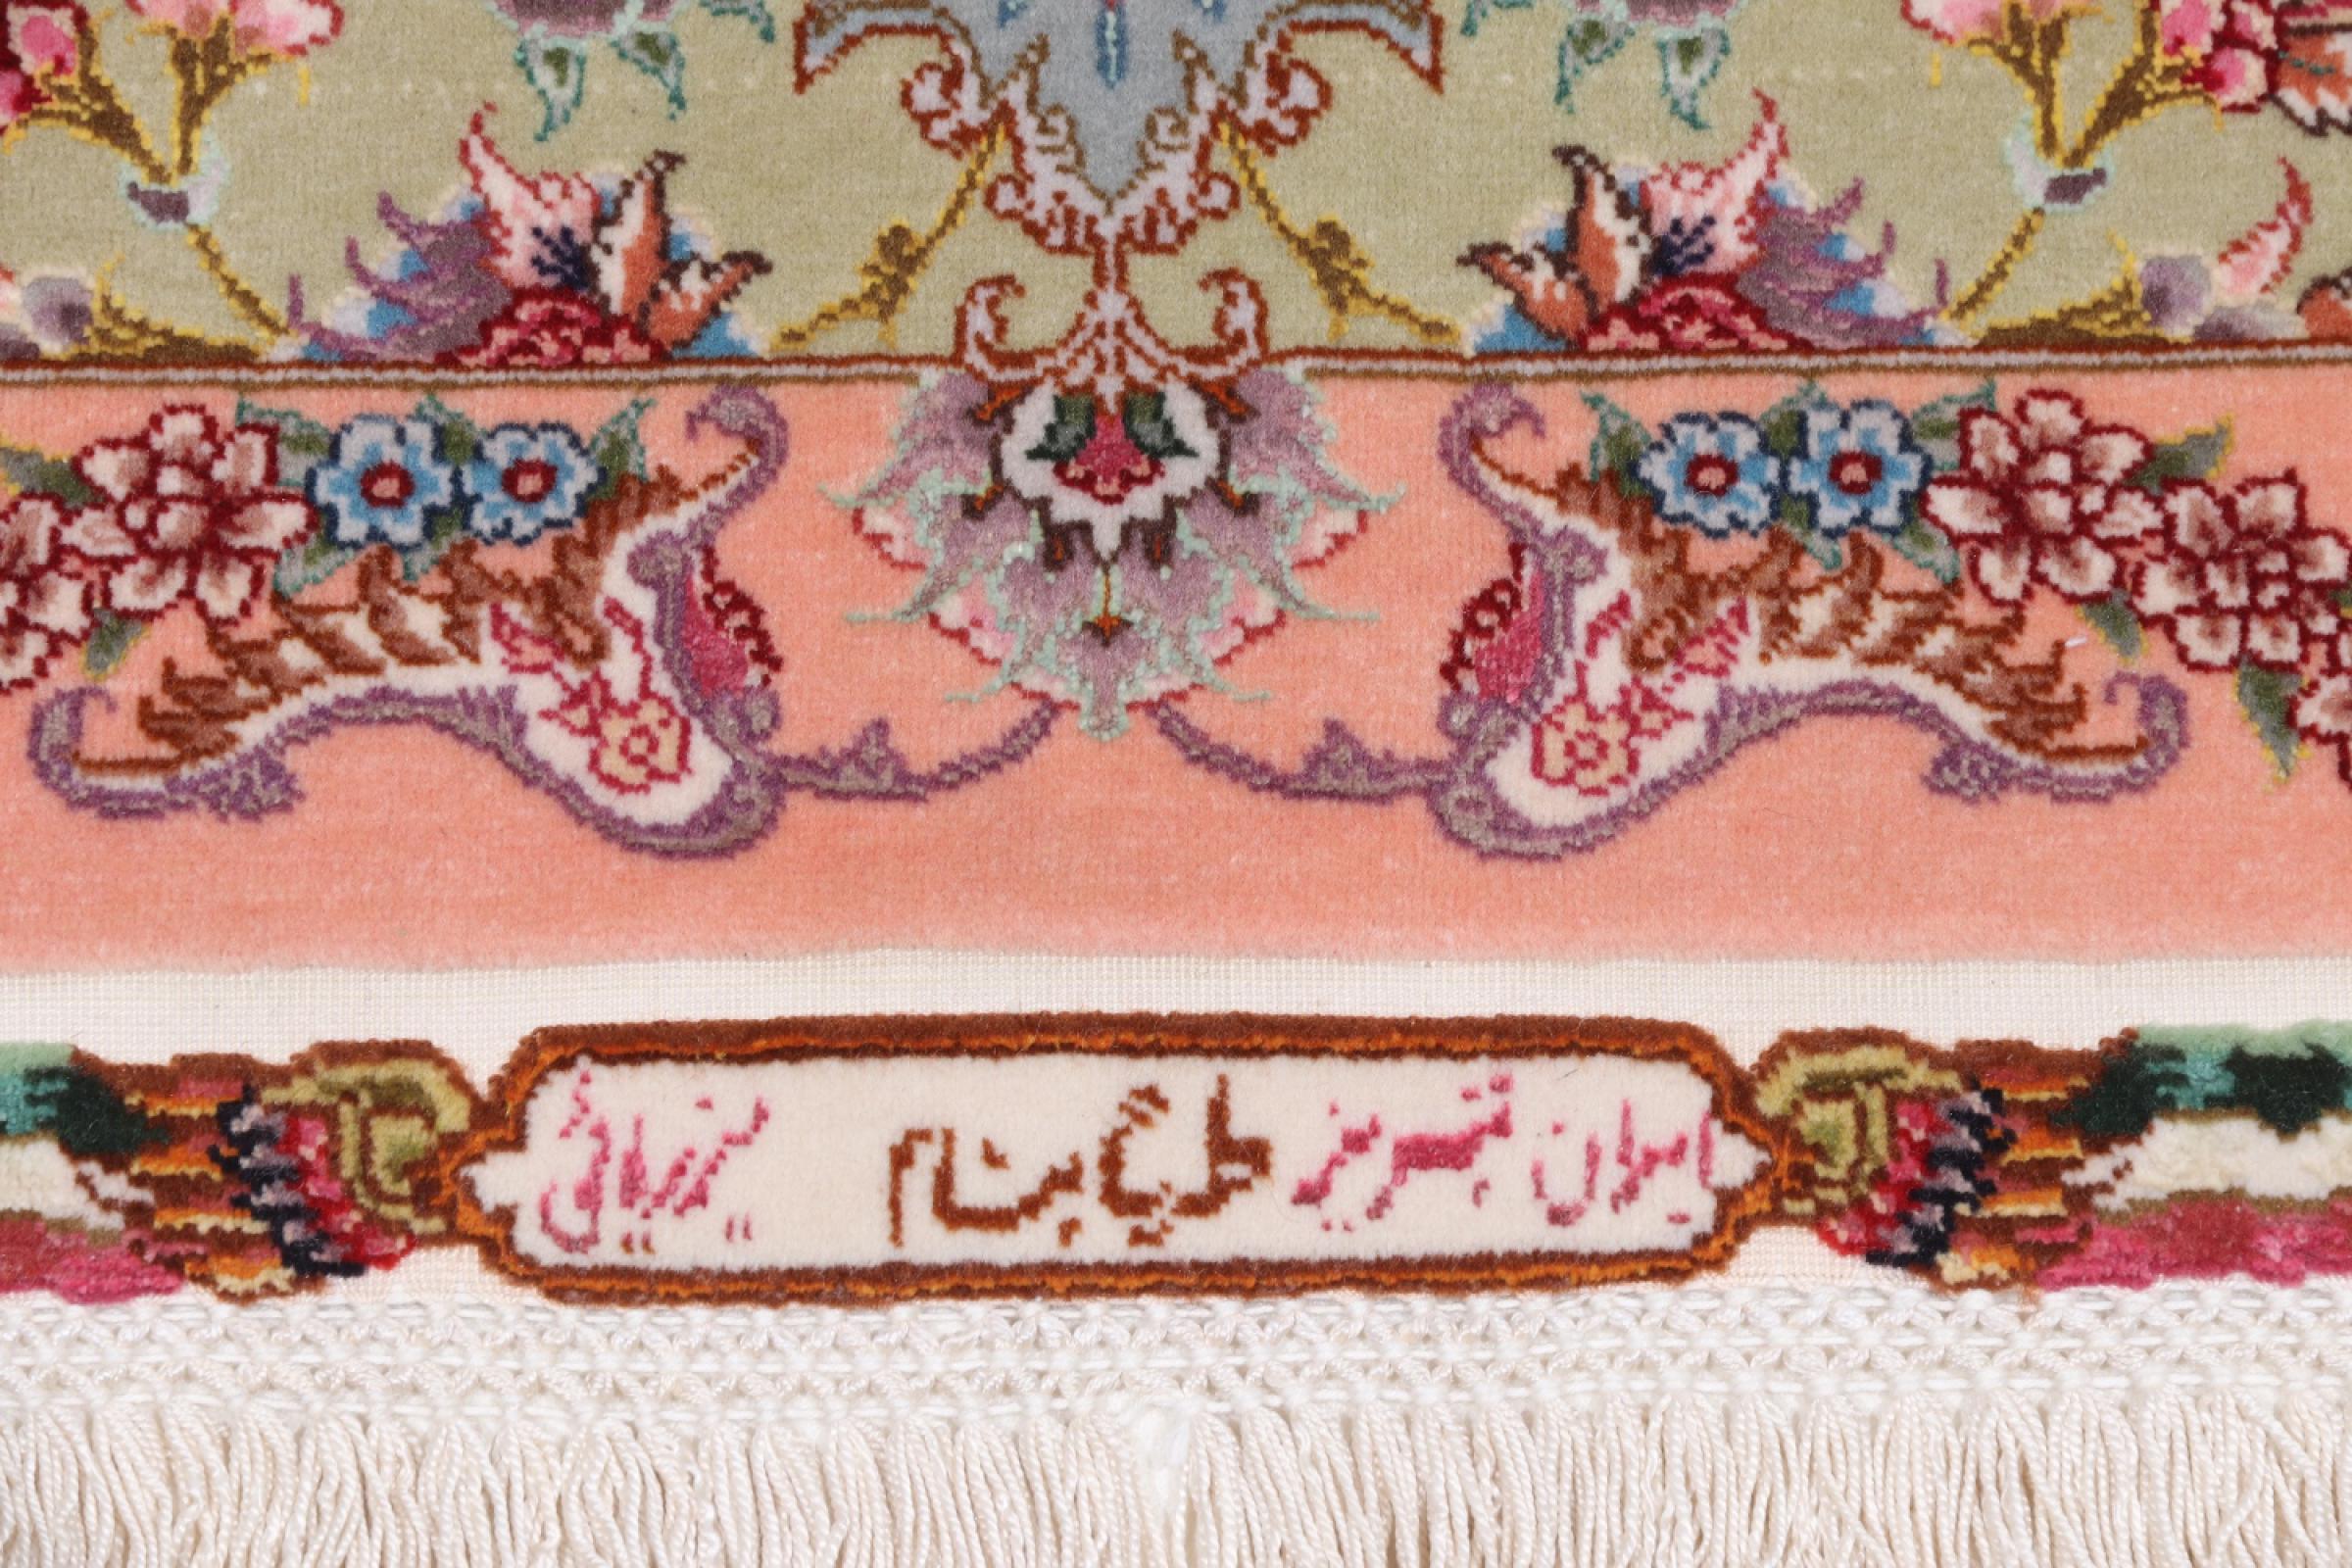 ایران تبریز طرح بنام میرزبائی